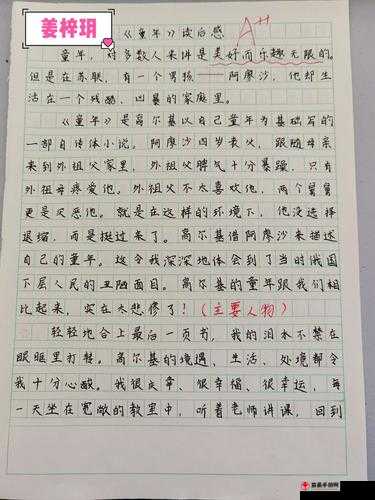 姜梓玥
《童年》读后感
A++
童年，对多数人来讲是美好而乐趣无限的。
但是在苏联，有一个男孩——阿廖沙，他却生
活在一个残酷、凶暴的家庭里。
《童年》是高尔基以自己童年为基础写的
一部自传体小说。阿廖沙四岁丧父，跟随母亲
来到外祖父家里，外祖父脾气十分暴躁，只有
外祖母疼爱他。外祖父不太喜欢他，两个舅舅
更是厌恶他。就是在这样的环境下，他没选择
退缩，而是挺过来了。高尔基借阿廖沙来描述
自己的童年。这令我深深地体会到了当时俄国
下层人民的丑陋面目。高尔基的童年跟我们相
比起来，实在太悲惨了！（主要人物）
轻轻地合上最后一页书，我的泪水不禁在
眼眶里打转。高尔基的境遇、生活、处境都令
我十分心酸。我很庆幸、很幸福、很幸运，每
一天坐在宽敞的教室中，听着老师讲课，回到